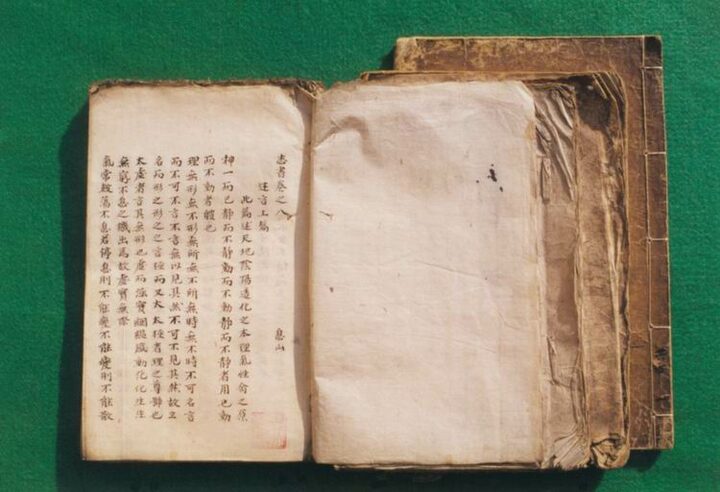 志書卷之八 息山
迂言上篇
此篇述天地陰陽造化之本理氣性命之原
神一而已靜而不靜動而不動靜而不靜者用也動
而不動者體也
理無形無不形無所無不所無時無不時不可名言
而不可不言不言無以見其然不可不見其然故立
名而形之形之之言極而又大太極者理之尊號也
太虛者言其無形也虛而涵實絪縕感動化化生生
無窮不息之機出焉故虛實無際
氣常盪不息若停息則不能變不能變則不能散